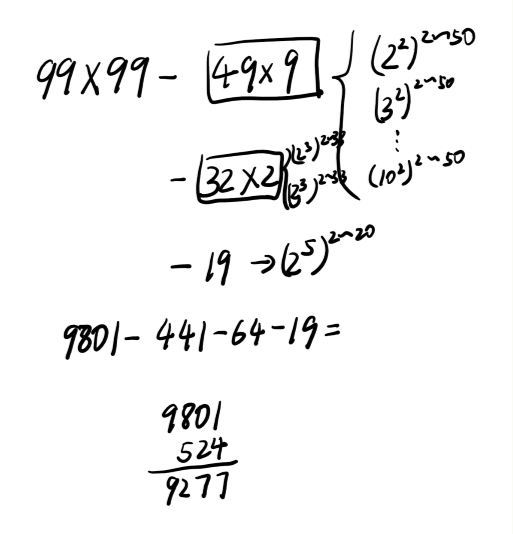 99×99 - 49×9 { (2²)^2~50
(3²)^2~50
⋮
(10²)^2~50
- 32×2 { (2³)^2~33
(3³)^2~33
- 19 → (2⁵)^2~20
9801 - 441 - 64 - 19 =
9801
524
9277